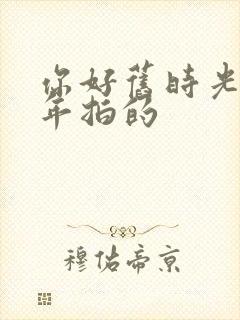 你好舊時光
年拍的
穆佑帝京